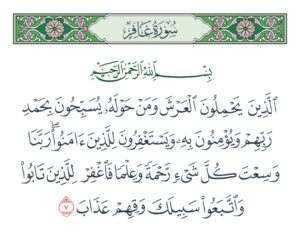 سُورَةُ غَافِرٍ
بِسْمِ اللَّهِ الرَّحْمَٰنِ الرَّحِيمِ
الَّذِينَ يَحْمِلُونَ الْعَرْشَ وَمَنْ حَوْلَهُ يُسَبِّحُونَ بِحَمْدِ
رَبِّهِمْ وَيُؤْمِنُونَ بِهِ وَيَسْتَغْفِرُونَ لِلَّذِينَ ءَامَنُوا رَبَّنَا
وَسِعْتَ كُلَّ شَيْءٍ رَّحْمَةً وَعِلْمًا فَاغْفِرْ لِلَّذِينَ تَابُوا
وَاتَّبَعُوا سَبِيلَكَ وَقِهِمْ عَذَابَ ٧